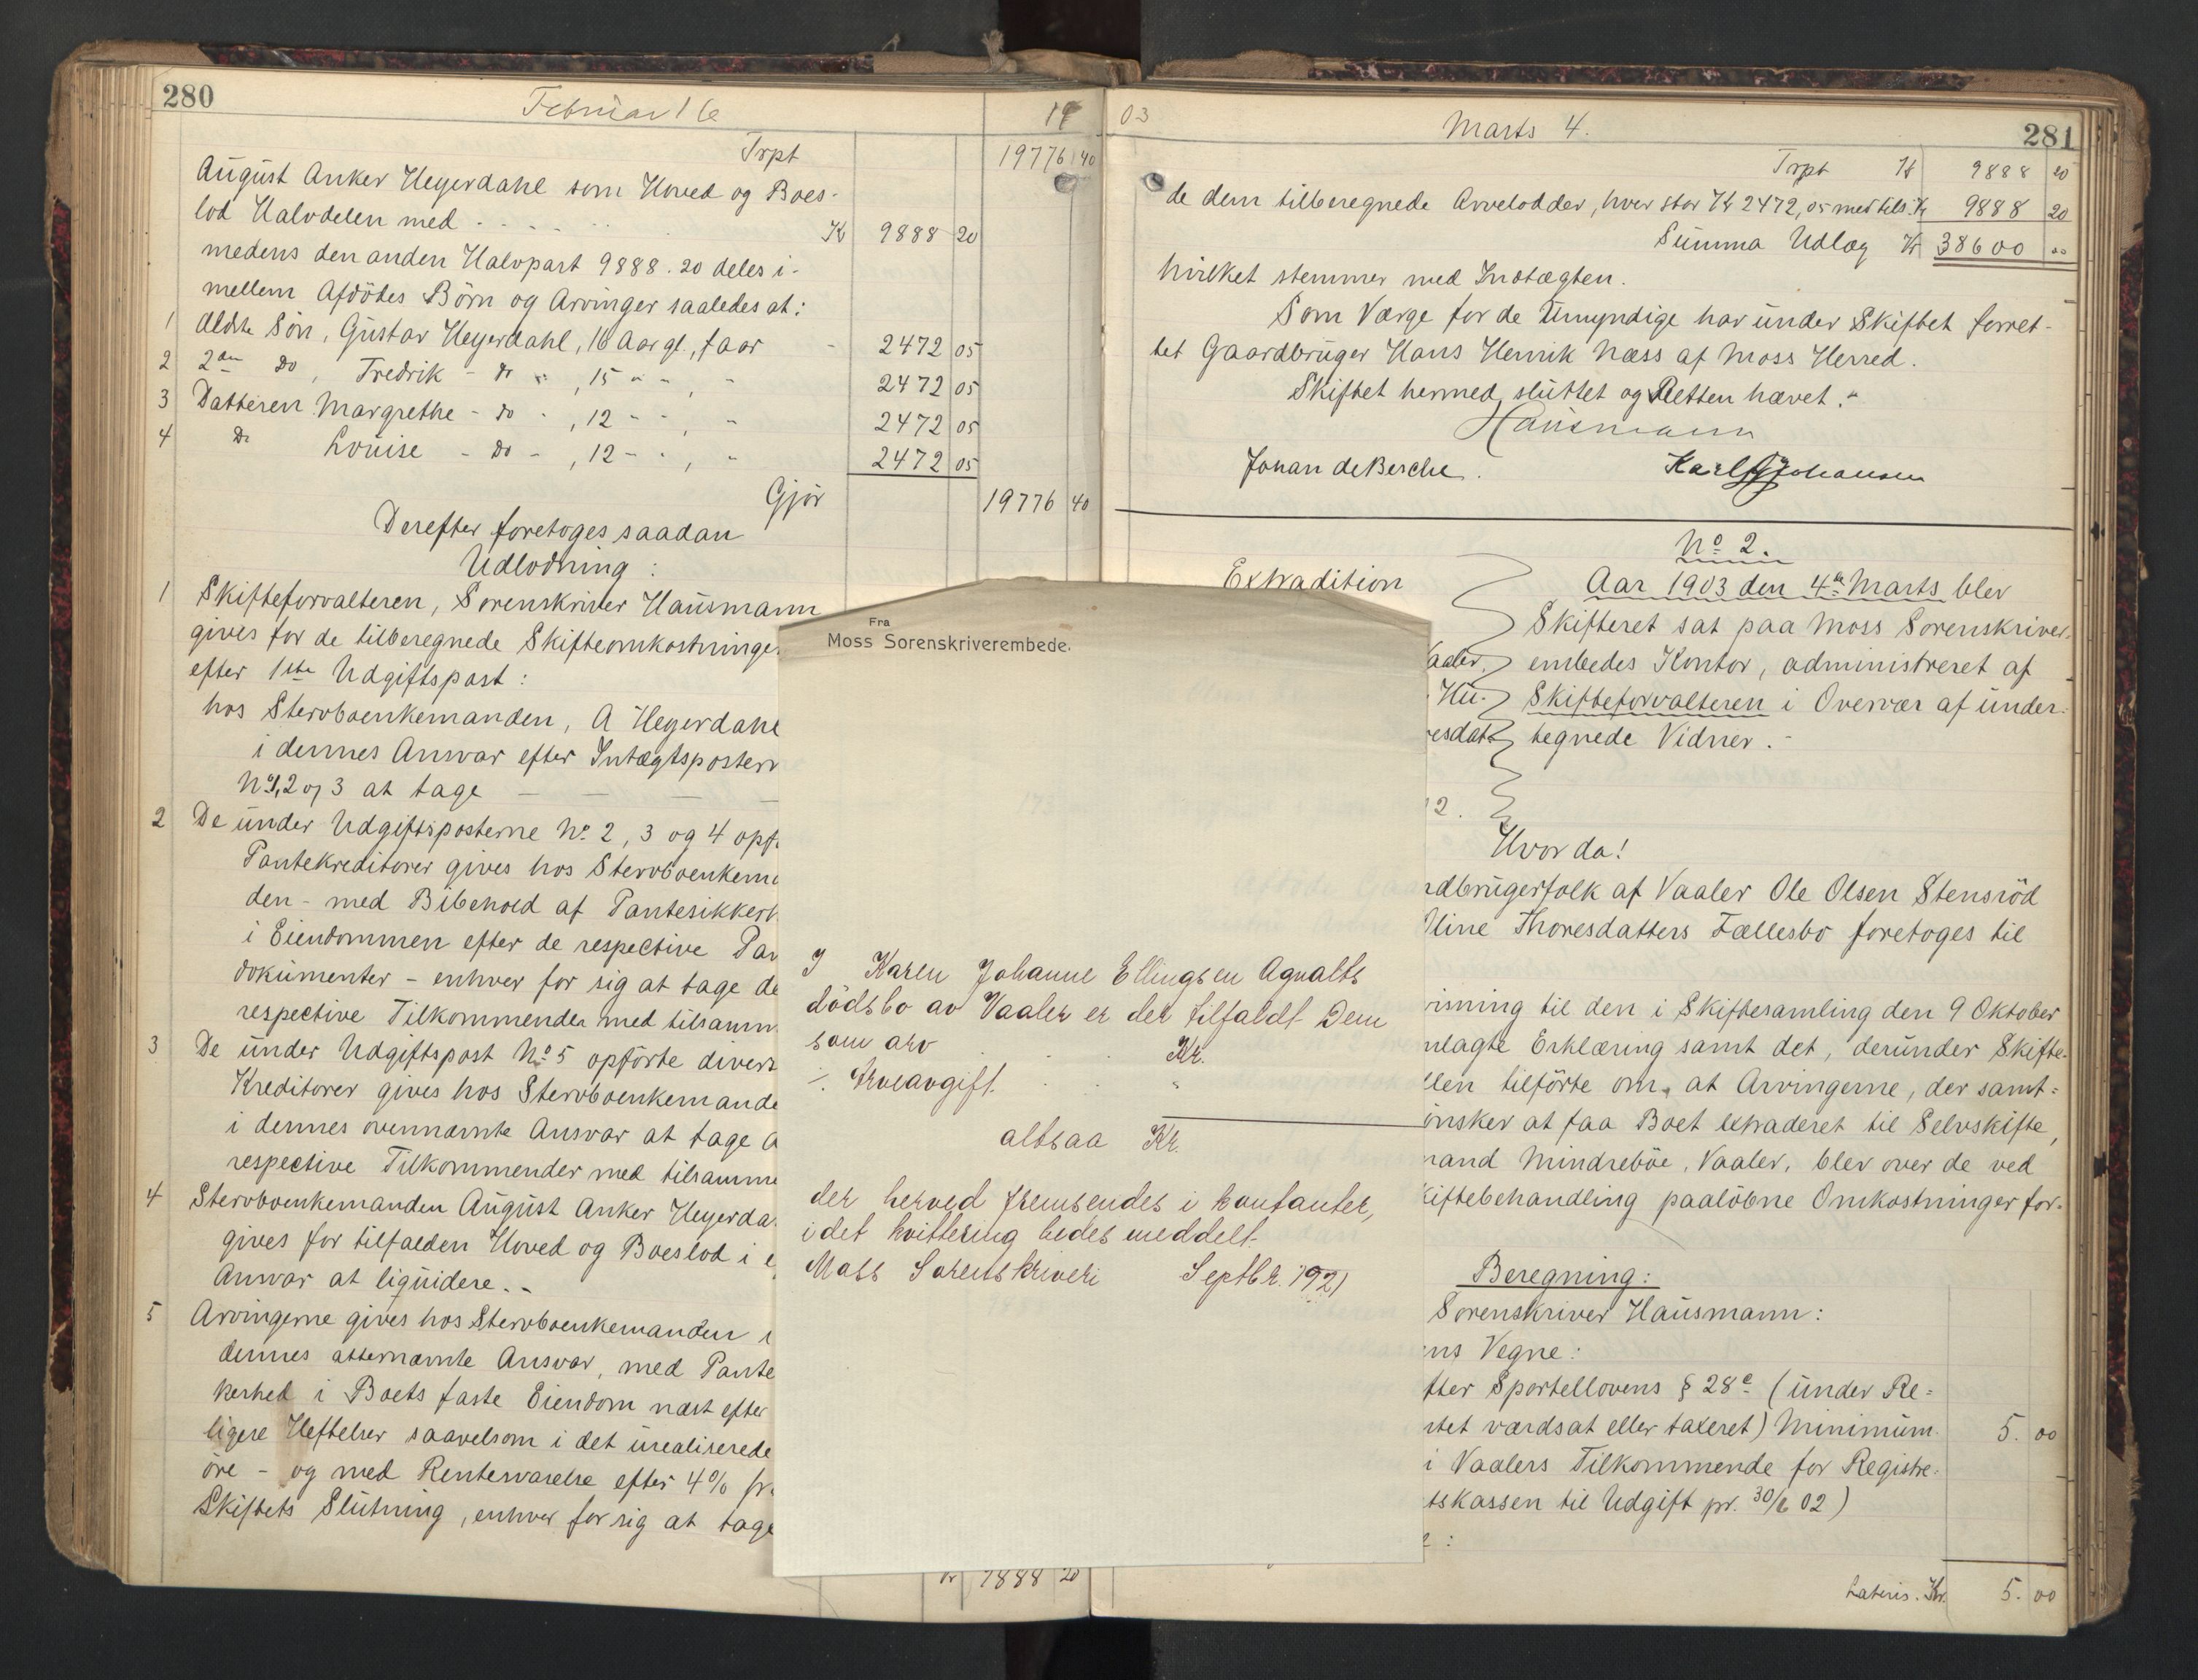 280
Februar 16
19
Trpt
19776 40
August Anker Heyerdahl som Hoved og Boes-
lod Halvdelen med - - - - Kr 9888 20
medens den anden Halvpart 9888.20 deles i-
mellem Afdödes Börn og Arvinger saaledes at:
1 Ældste Sön, Gustav Heyerdahl, 16 Aar gl, faar - 2472 05
2 2den do, Fredrik - do - , 15 - - , - 2472 05
3 Datteren Margrethe - do - , 12 - - , - 2472 05
4 Do Louise - do - , 12 - - , - 2472 05
Gjör 19776 40
Derefter foretoges saadan
Udlodning :
1 Skifteforvalteren, Sorenskriver Hausmann
gives for de tilberegnede Skifteomkostninge
efter 1ste Udgiftspost :
hos Stervboenkemanden, A Heyerdahl
i dennes Ansvar efter Intægtspostern
No 1, 2 og 3 at tage - - - -
2 De under Udgiftsposterne No. 2, 3 og 4 opf
Pantekreditorer gives hos Stervboenkem
den - med Bibehold af Pantesikkerh
i Eiendommen efter de respective Pan
dokumenter - enhver for sig at tage de
respective Tilkommender med tilsamm
3 De under Udgiftspost No 5 opförte divers
Kreditorer gives hos Stervboenkemande
i dennes ovennævnte Ansvar at tage
respective Tilkommender med tilsamm
4 Stervboenkemanden August Anker Heyerda
gives for tilfalden Hoved og Boeslod i e
Ansvar at liquidere. -
5 Arvingerne gives hos Stervboenkemanden i
dennes atternævnte Ansvar, med Pante
kerhed i Boets faste Eiendom næst efter
ligere Heftelser saavelsom i det urealiserede
öre - og med Rentesvarelse efter 4% fr
Skiftets Slutning, enhver for sig at tage
Kr 9888 20
Fra
Moss Sorenskriverembede.
I Karen Johanne Ellingsen Agnalts
dödsbo av Vaaler er det tilfaldt Dem
som arv . . Kr.
÷ Arveavgift . . "
altsaa Kr.
der herved fremsendes i kontanter,
idet kvittering bedes meddelt.
Moss Sorenskriveri Septbr. 1921
03
Marts 4.
281
Trpt Kr 9888 20
de dem tilberegnede Arvelodder, hver stor Kr 2472,05 med tils. Kr 9888 20
Summa Udlæg Kr 38600 00
hvilket stemmer med Indtægten.
Som Værge for de Umyndige har under Skiftet forret-
tet Gaardbruger Hans Henrik Næss af Moss Herred.
Skiftet hermed sluttet og Retten hævet. -
Hausmann
Johan de Besche. Karl G Johansen
No 2.
Extradition
Aar 1903 den 4de Marts blev
Skifteret sat paa Moss Sorenskriver-
Vaaler, embedes Kontor, administreret af
Hu- Skifteforvalteren i Overvær af under-
resdatt tegnede Vidner. -
2.
Hvor da!
rdbrugerfolk af Vaaler Ole Olsen Stensröd
Oline Thoresdatters Fællesbo foretoges til
isning til den i Skiftesamling den 9 Oktober
mlagte Erklæring samt det, derunder Skifte-
llen tilförte om, at Arvingerne, der samt-
önsker at faa Boet extraderet til Selvskifte,
mand Mindreböe, Vaaler, blev over de ved
kiftebehandling paalöbne Omkostninger for-
Beregning:
Sorenskriver Hausmann:
ns Vegne:
fter Sportellovens § 28c (under Re-
stet værdsat eller taxeret) Minimum. 5. 00
i Vaalers Tilkommende for Registre-
tskassen til Udgift pr. 30/6 02)
:
Lateris. Kr. 5. 00